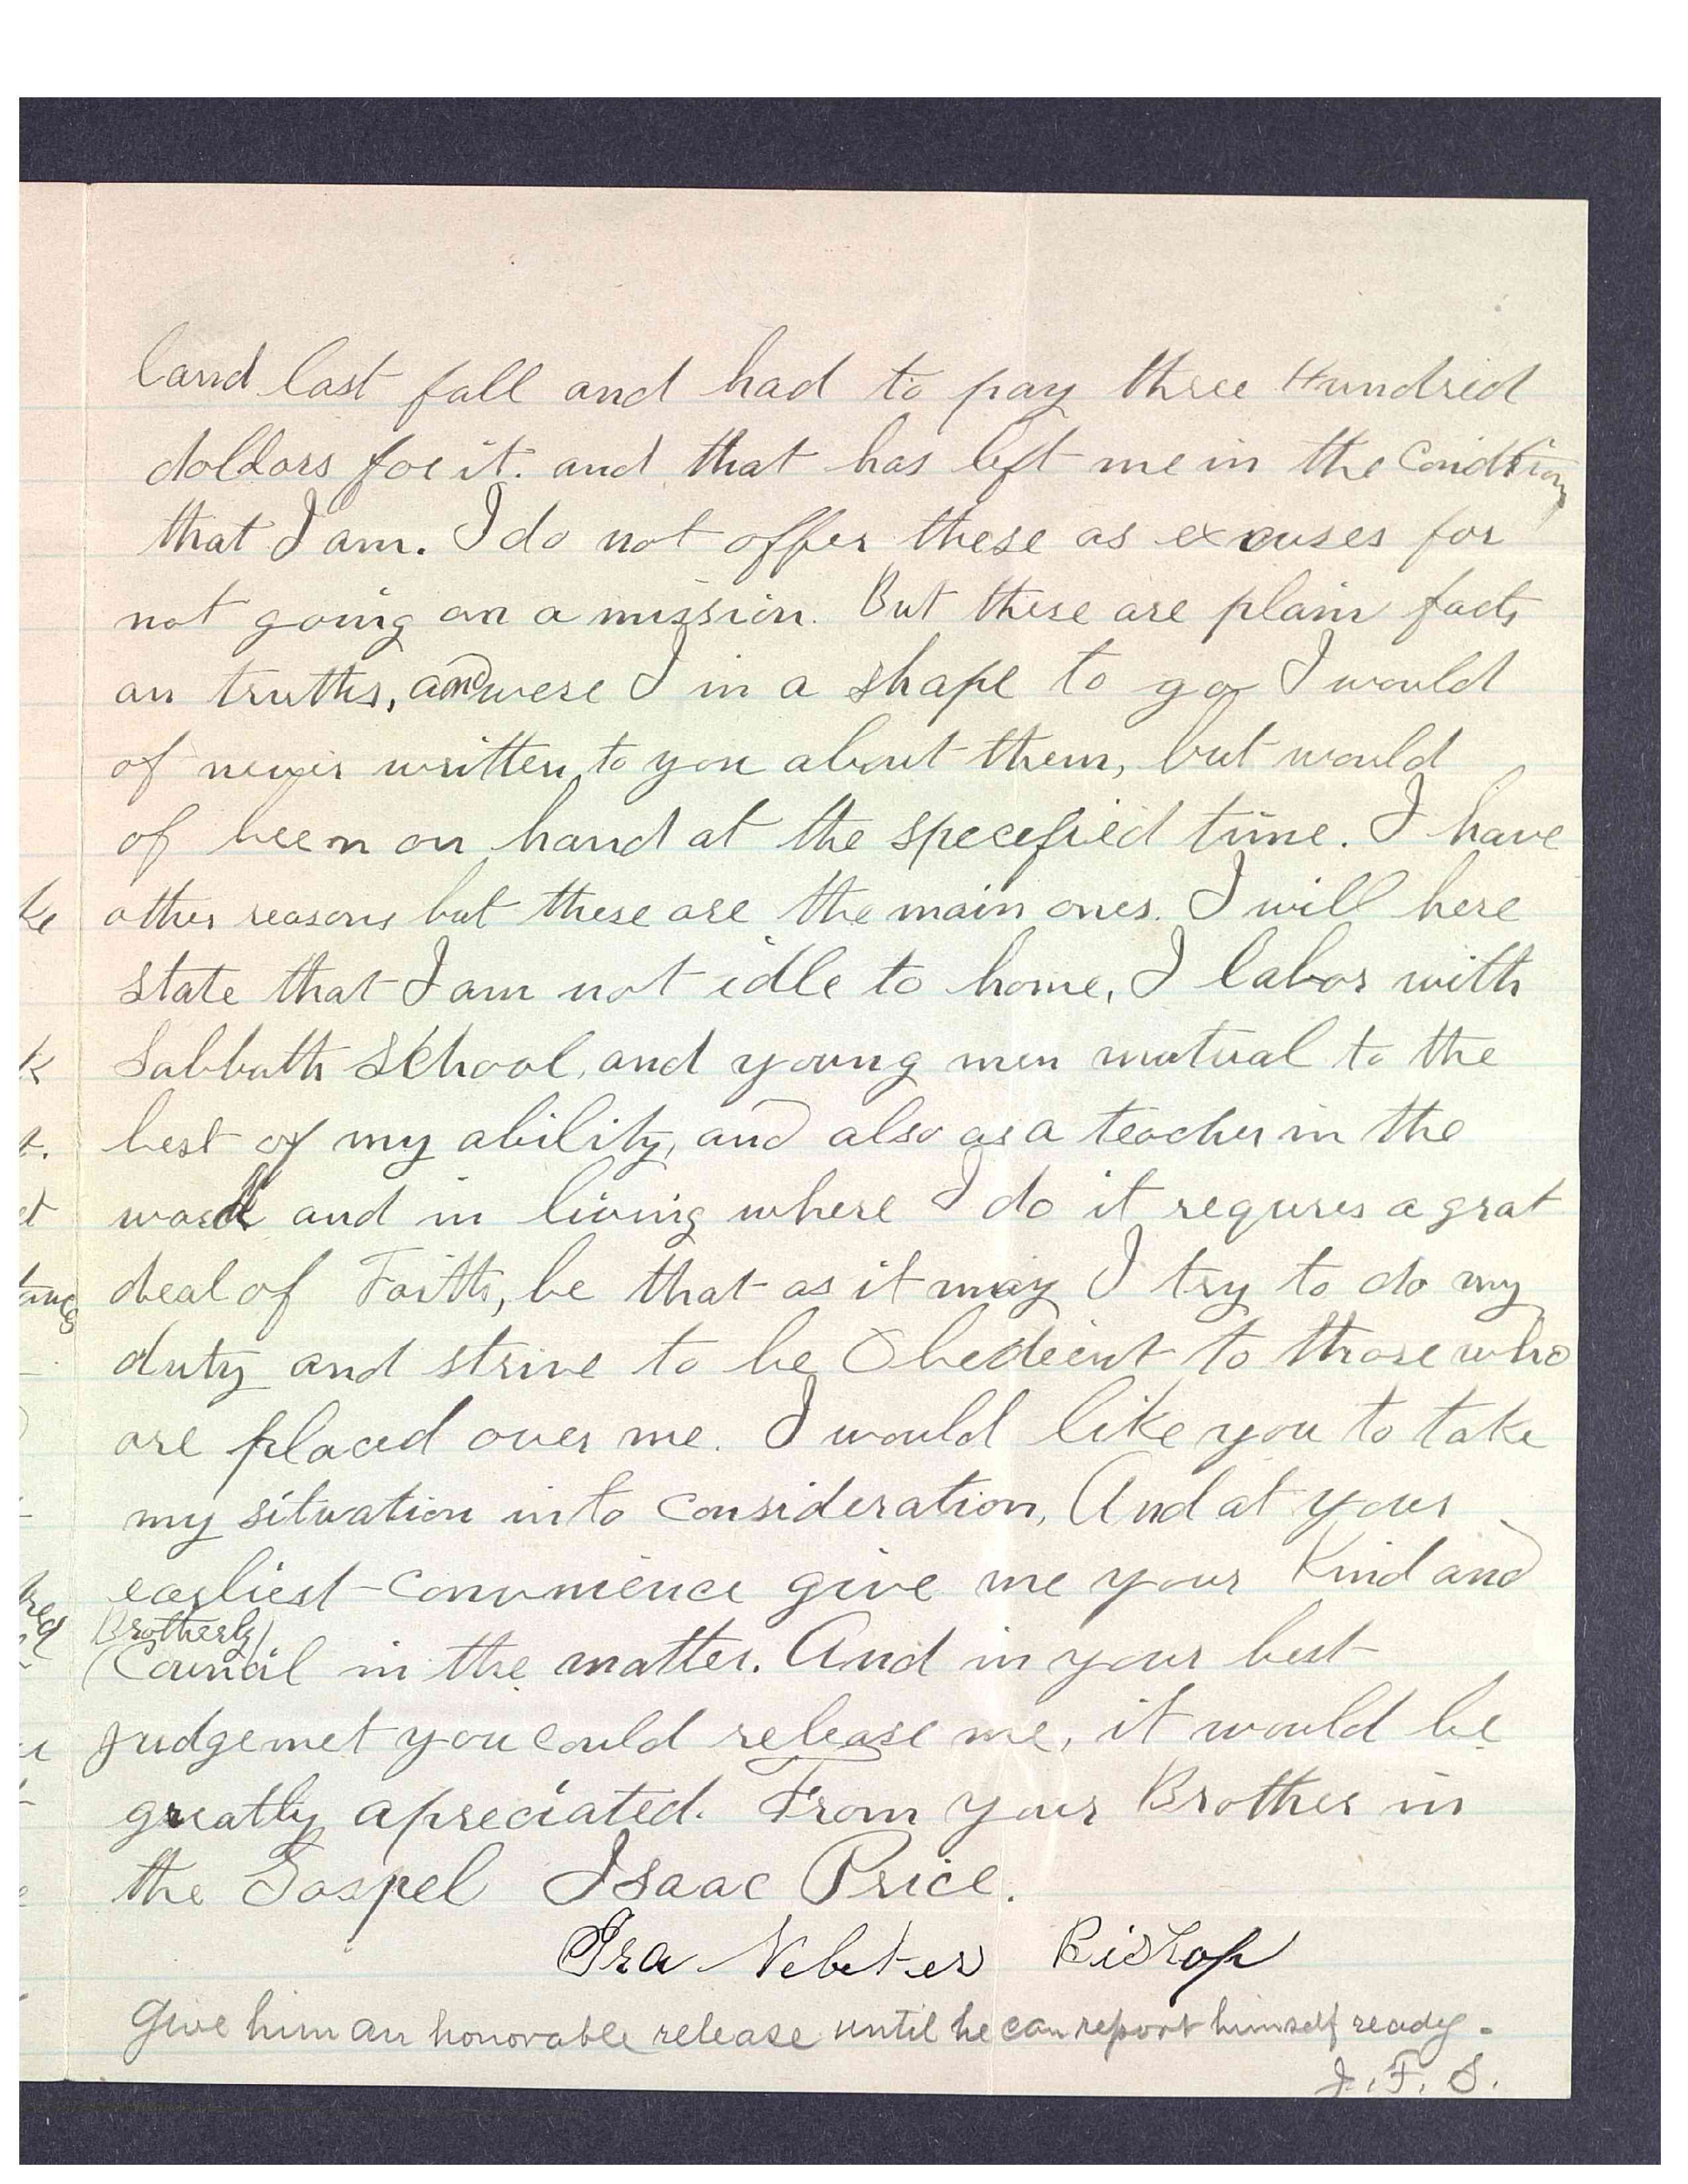 land last fall and had to pay three Hundrid
dollars for it. and that has left me in the Condition
that I am. I do not offer these as excuses for
not going on a mission. But these are plain facts
an truths, and were I in a shape to go I would
of never written to you about them, but would
of been on hand at the specefied time. I have
other reasons but these are the main ones. I will here
state that I am not idle to home, I labor with
Sabbath School, and young men mutual to the
best of my ability, and also as a teacher in the
ward and in living where I do it requres a grat
deal of Faith, be that as it may I try to do my
duty and strive to be Obedient to those who
are placed over me. I would like you to take
my situation into consideration, And at your
earliest convinience give me your Kind and
Brotherly
Council in the matter. And in your best
judgemet you could release me, it would be
greatly apreciated. From your Brother in
the Gospel Isaac Price.
Ira Bishop
Give him an honorable release until he can report himself ready.
J. F. S.